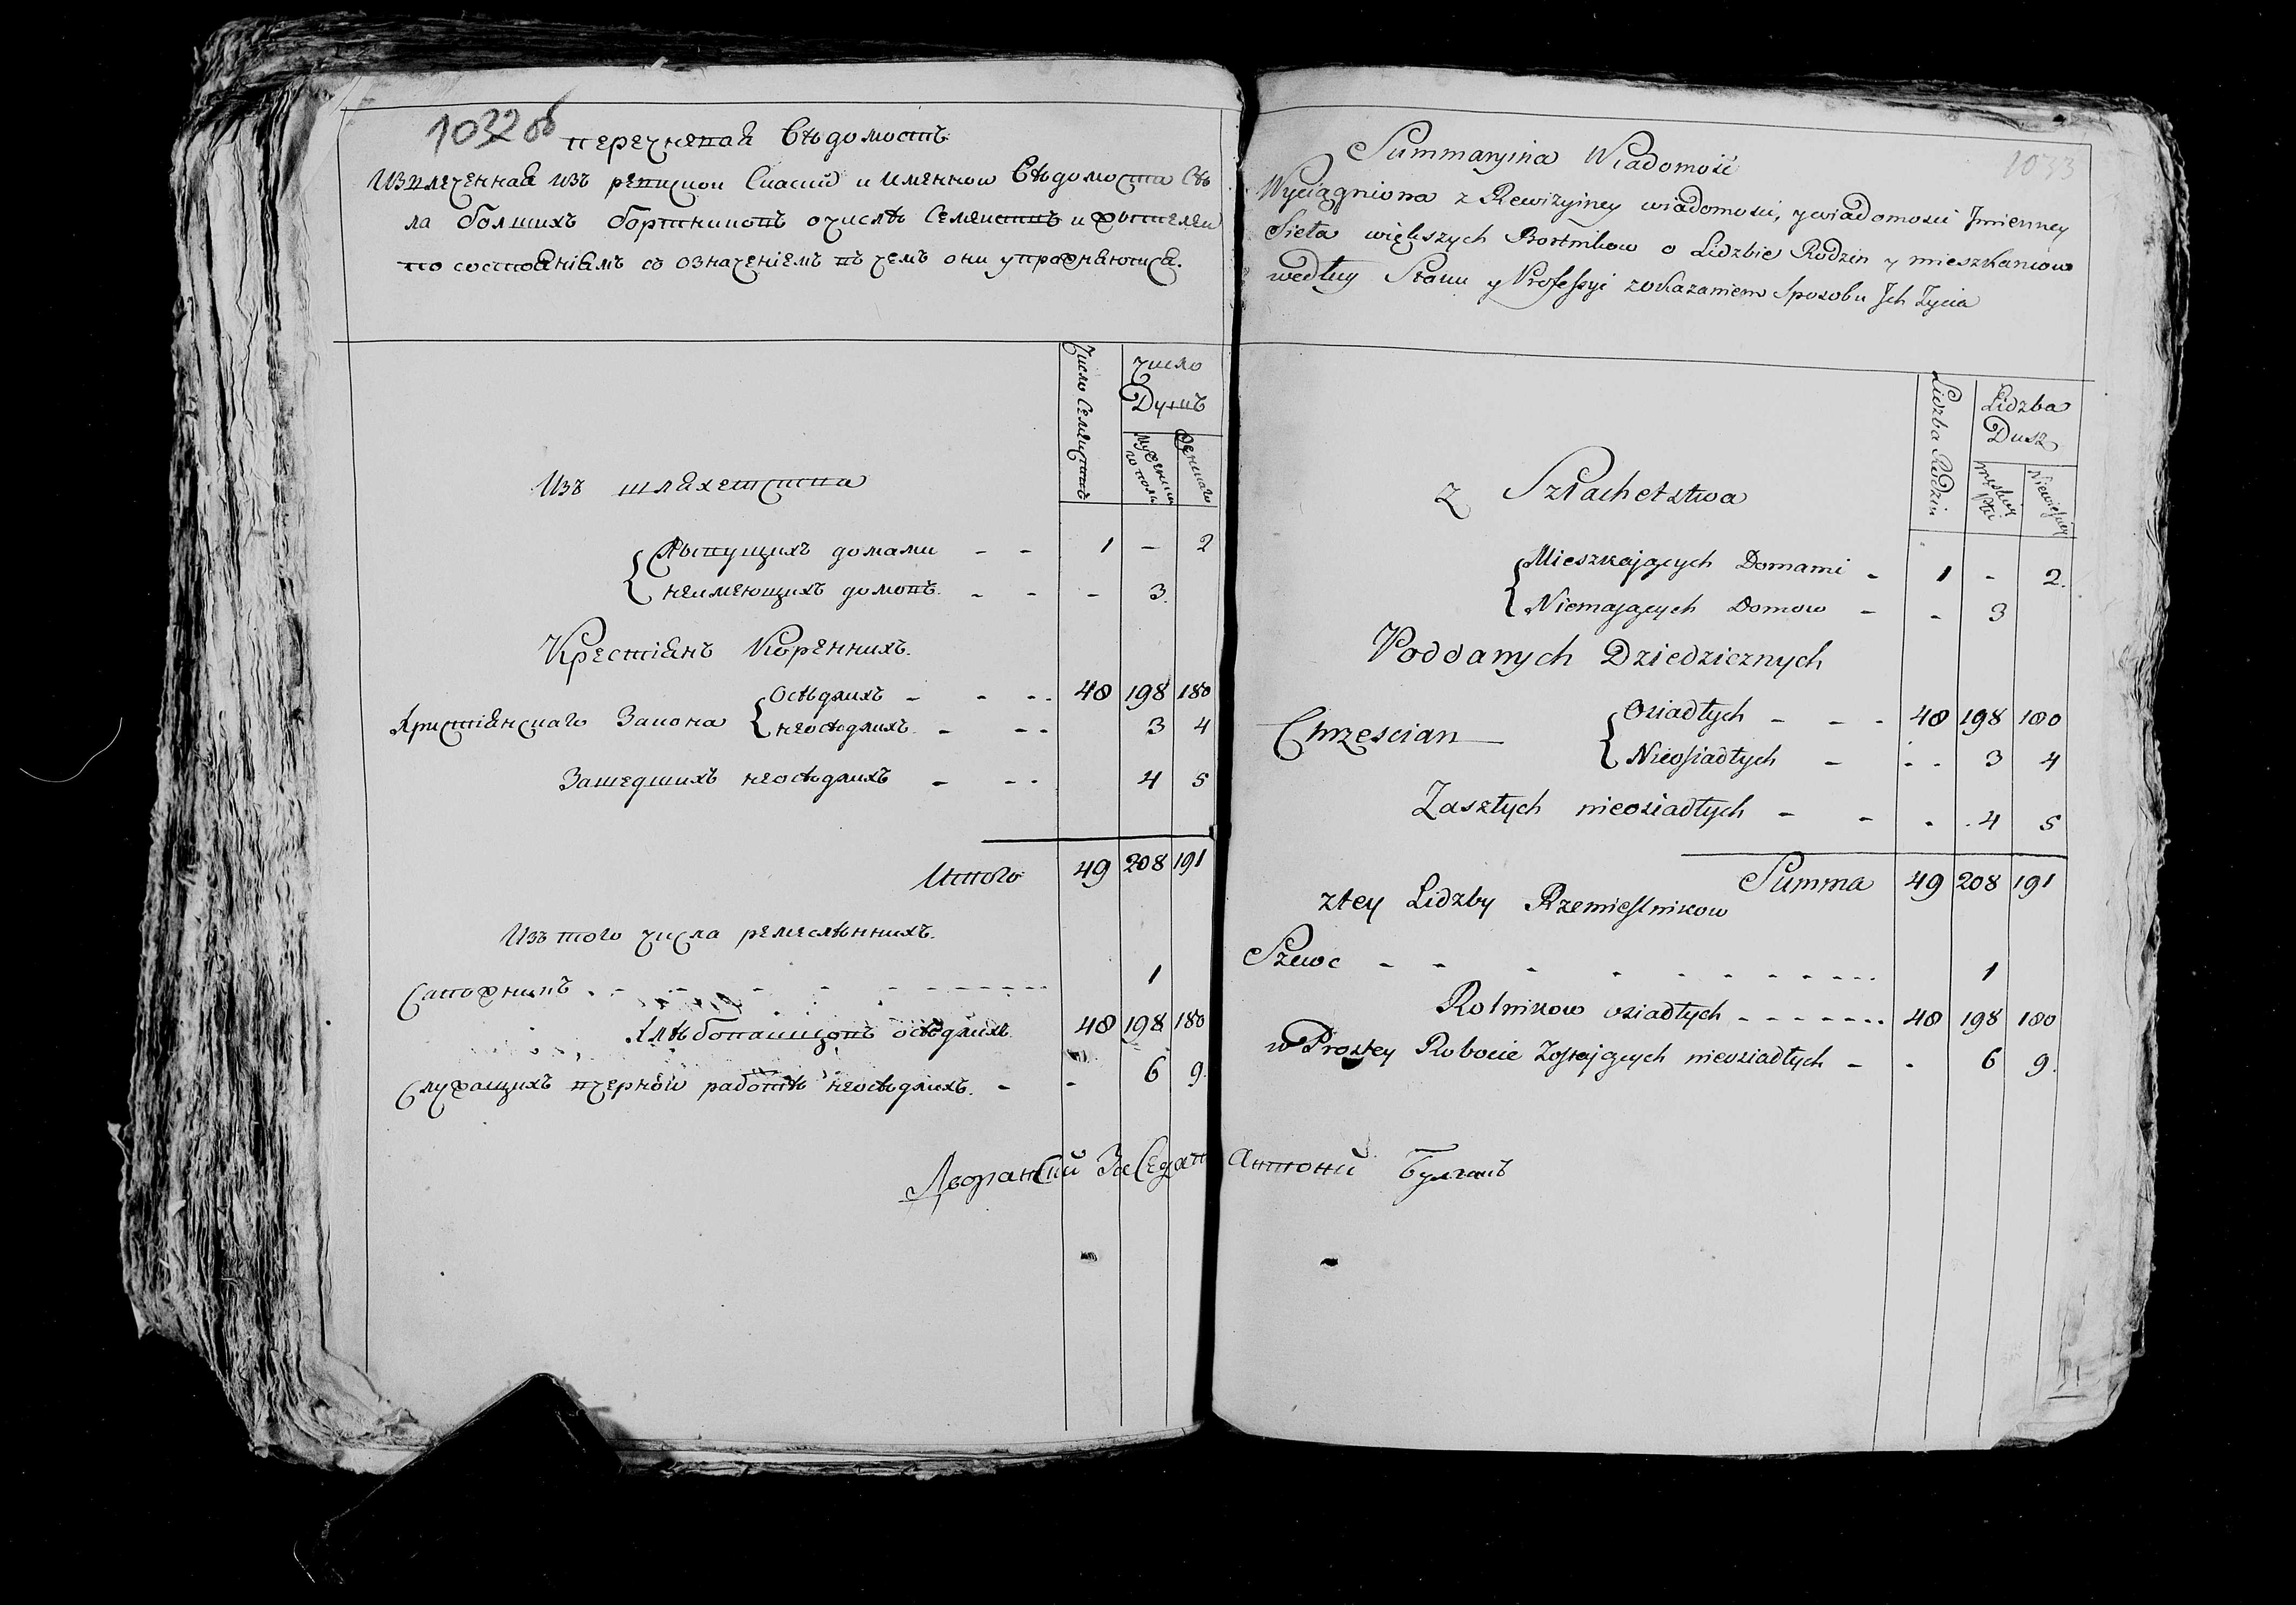 1032 об
перечневая Вѣдомость
Извлеченная изъ ревизской Сказки и именной Вѣдомости Се
ла большихъ бортниковъ о числѣ Семействъ и жителей
по состоянiямъ съ означенiемъ въ чемъ они упражняются.
Число Семействъ
число
Душъ
мужеска
го пола
женскаго
Изъ шляхетства
Живущихъ домами - - 1 - 2
неимеющихъ домовъ. - - - 3
Крестiянъ Коренныхъ.
Христiянскаго Закона
Осѣдлихъ - - - 48 198 180
неосѣдлихъ. - - - 3 4
Зашедшихъ неосѣдлихъ - - - 4 5
Итого 49 208 191
Изъ того числа ремеслѣнныхъ.
Сапожникъ 1
Хлѣбопашцовъ осѣдлихъ 48 198 180
Служащихъ в черной работѣ неосѣдлихъ. - - 6 9.
Дворанский Заседат Антоний Булгакъ
1033
Summaryina Wiadomość
Wyciągniona z Rewizyiney wiadomosci, y wiadomosci Jmienney
Sieła większych Bortnikow o Lidzbie Rodzin y mieszkancow
według Stanu y Professyi z okazaniem sposobu Jch Życia
Lidzba Rodzin
Lidzba
Dusz
męskiey
płci
Niewieściey
Z Szlachetstwa
Mieszkaiących Domami - 1 - 2.
Niemaiących Domow - - 3
Poddanych Dziedzicznych
Chrzescian
Osiadłych - - - 48 198 180
Nieosiadłych - - - 3 4
Zaszłych nieosiadłych - - - 4 5
Summa 49 208 191
z tey Lidzby Rzemieslnikow
Szewc 1
Rolnikow osiadłych - - - - - - - 48 198 180
w Prostey Robocie Zostaiących nieosiadłych - - 6 9.